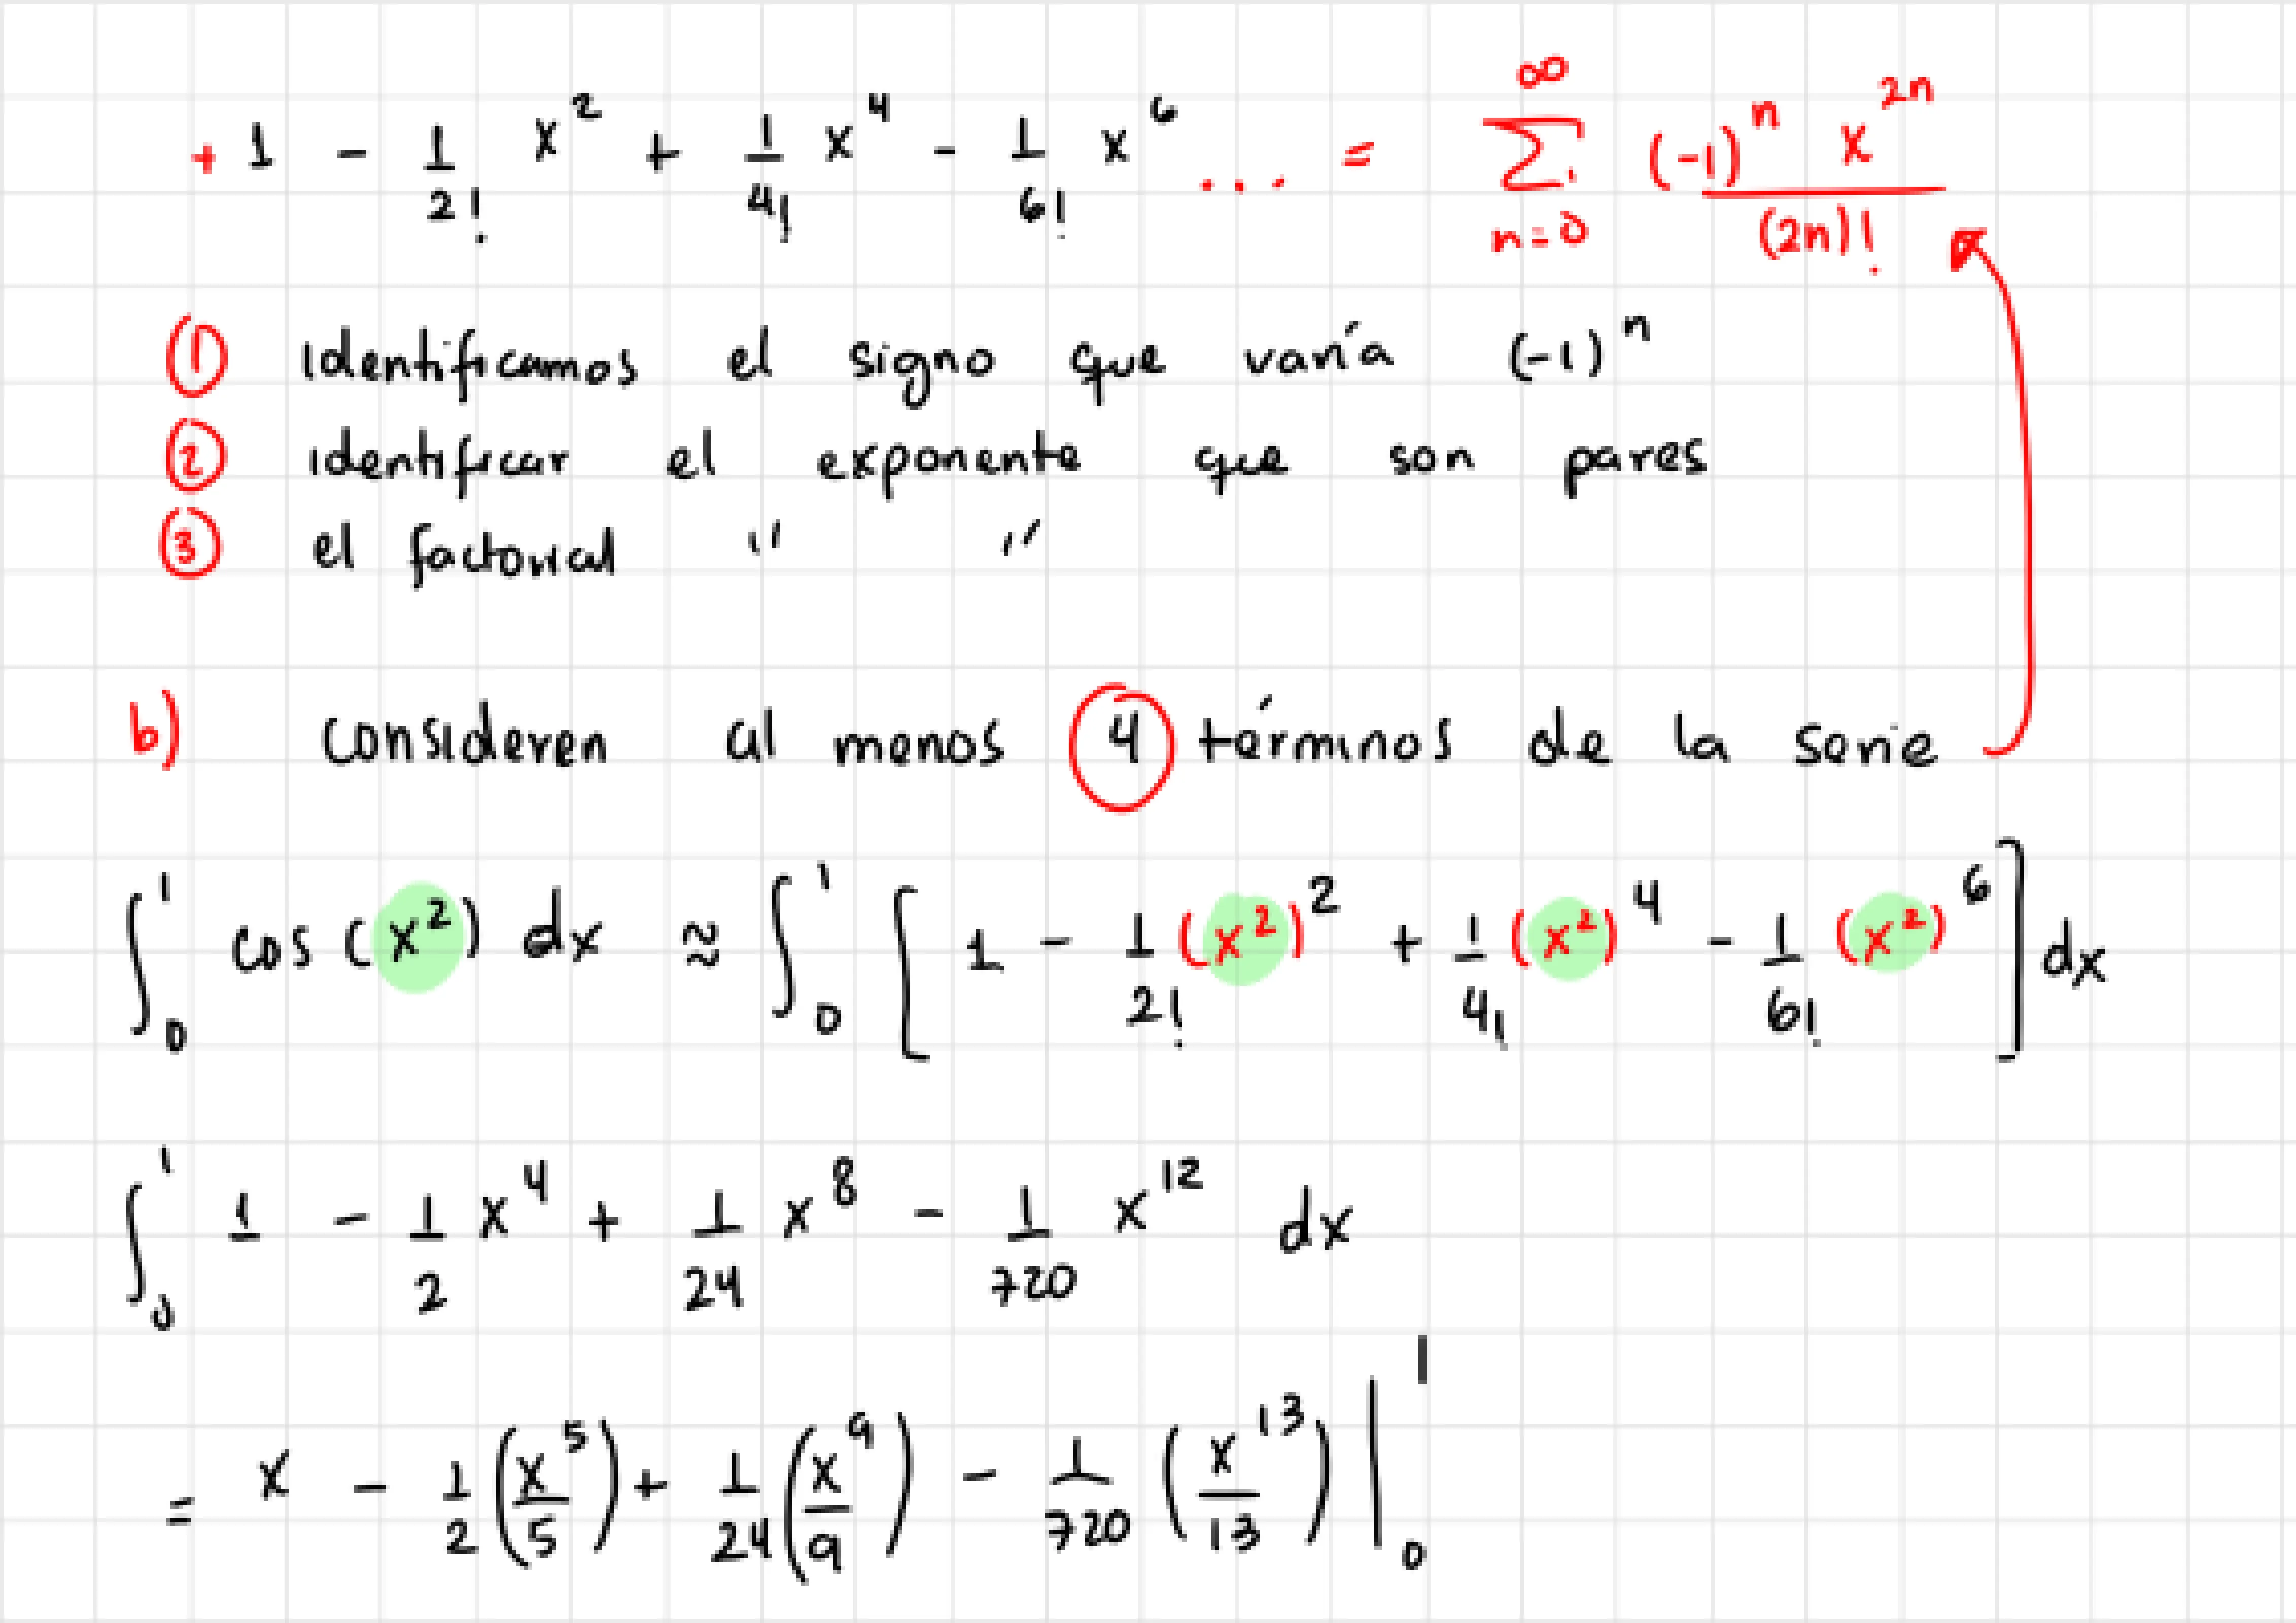 + 1 - 1/2! x^2 + 1/4! x^4 - 1/6! x^6 ... = ∞ ∑ n=0 (-1)^n x^2n / (2n)!
① Identificamos el signo que varía (-1)^n
② identificar el exponente que son pares
③ el factorial " "
b) Consideren al menos 4 términos de la serie
∫_0^1 cos (x^2) dx ≈ ∫_0^1 [ 1 - 1/2! (x^2)^2 + 1/4! (x^2)^4 - 1/6! (x^2)^6 ] dx
∫_0^1 1 - 1/2 x^4 + 1/24 x^8 - 1/720 x^12 dx
= x - 1/2 (x^5/5) + 1/24 (x^9/9) - 1/720 (x^13/13) |_0^1